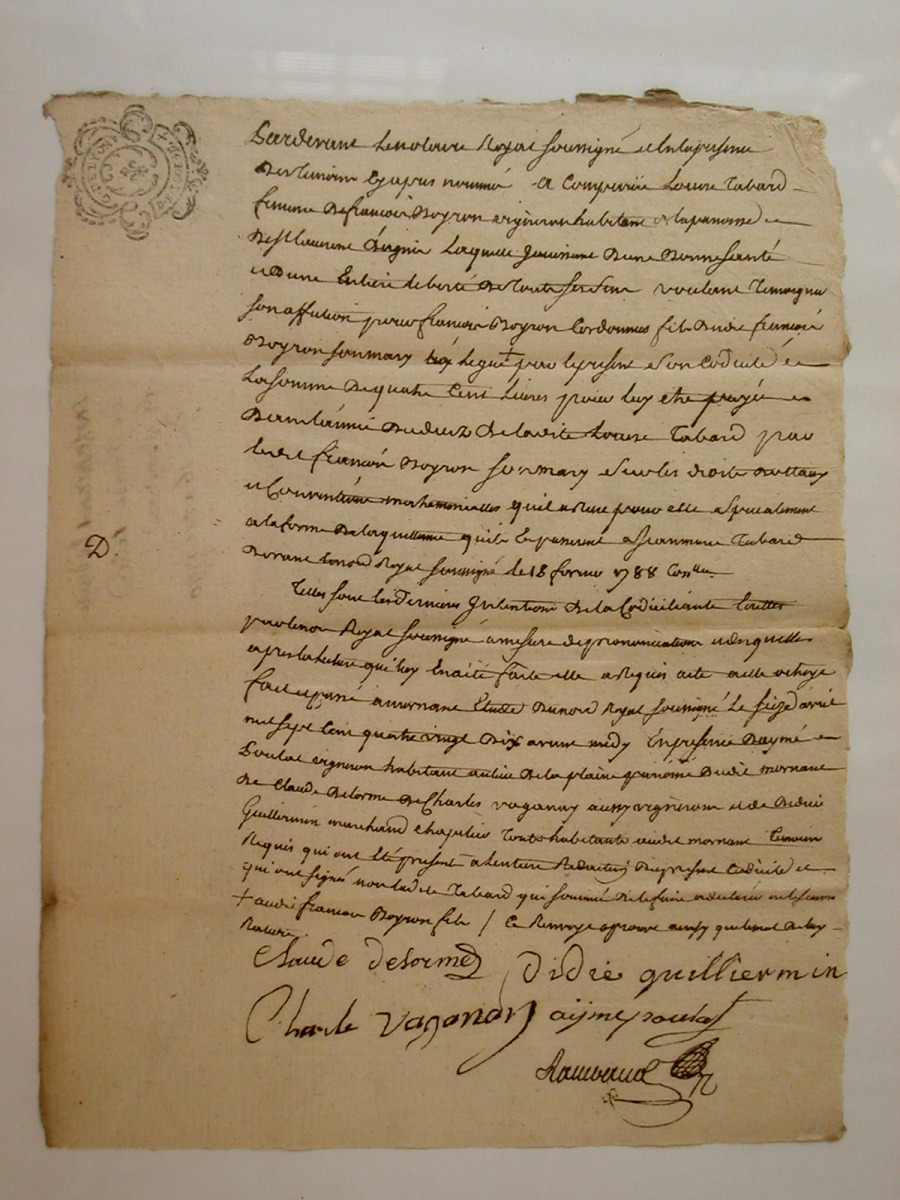 Pardevant Le notaire Royal soussigné et En la presence
Des temoins Cy apres nommé a Comparüe Louise Tabard
femme De francois Boyron vigneron habitant la paroisse
De St laurent Dagnie Laquelle Jouissant D'une Bonne santé
et D'une Entiere liberté De touts ses sens voulant Temoigner
son affection pour francois Boyron Cordonnier fils Dudit francois
Boyron son mary legue + par le present son Codicile
La somme De quatre Cent Livres pour luy etre payée
Dans l'année Du deces De la dite Louise Tabard par
le dit francois Boyron son mary sur les droits
et Conventions matrimonialles quil a Recu pour elle specialement
a la forme De la quittance quils En passerent a Jeanmarie Tabard
Devant Lenore Royal soussigné le 18 fevrier 1788 Con.lle
Telles sont les Dernieres Intentions De la Codiciliante Ecrittes
par lenore Royal soussigné a mesure de prononciation et desquelles
apres la lecture qui luy En a été faite elle a Requis acte a elle octroyé
fait et passé a mornant Etude Dunore Royal soussigné Le seize avril
mil sept Cent quatre vingt Dix avant midy En presence D'aymé
Poulat vigneron habitant au lieu De la plaine paroisse Dudit mornant
De Claude Delorme De Charles vaganay aussy vignerons et de Didié
Guillermin marchand Chapelier touts habitants audit mornant temoins
Requis qui ont été present a lenture Redaction Du present Codicile et
qui ont signés non ladite Tabard qui sommé De le faire a declaré ne le savoir
+ audit francois Boyron fils / Ce Renvoye aprouvé aussy que le mot De luy
Raturé
D.
Claude Delorme Didié quilliermin
Charle vaganay aijme poulat